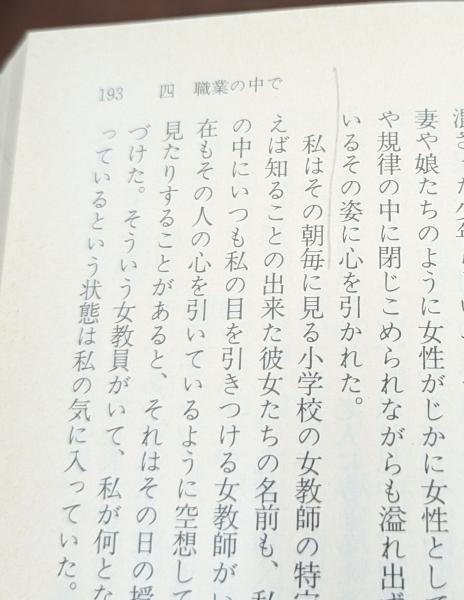 193 四 職業の中で
妻や娘たちのように女性がじかに女性として
や規律の中に閉じこめられながらも溢れ出ず
いるその姿に心を引かれた。
私はその朝毎に見る小学校の女教師の特定
えば知ることの出来た彼女たちの名前も、私
の中にいつも私の目を引きつける女教師がい
在もその人の心を引いているように空想して
見たりすることがあると、それはその日の授
づけた。そういう女教員がいて、私が何とな
っているという状態は私の気に入っていた。